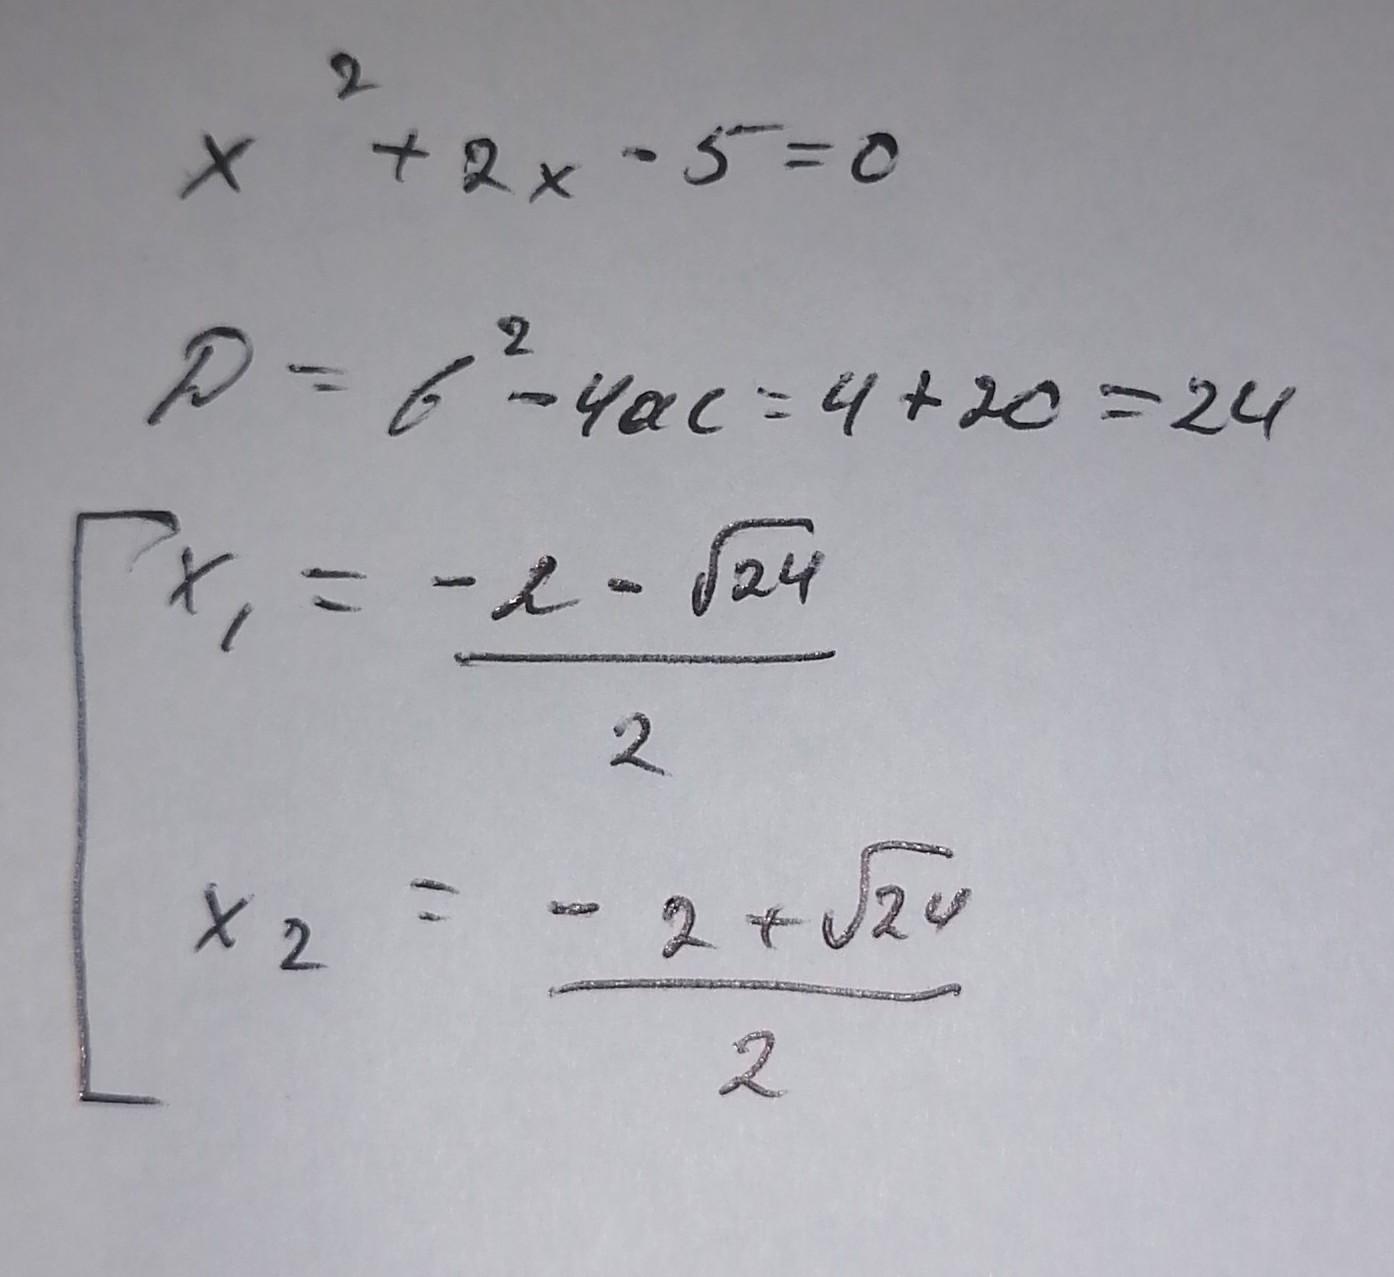 x² + 2x - 5 = 0
D = b² - 4ac = 4 + 20 = 24
[ x₁ = (-2 - √24) / 2
x₂ = (-2 + √24) / 2